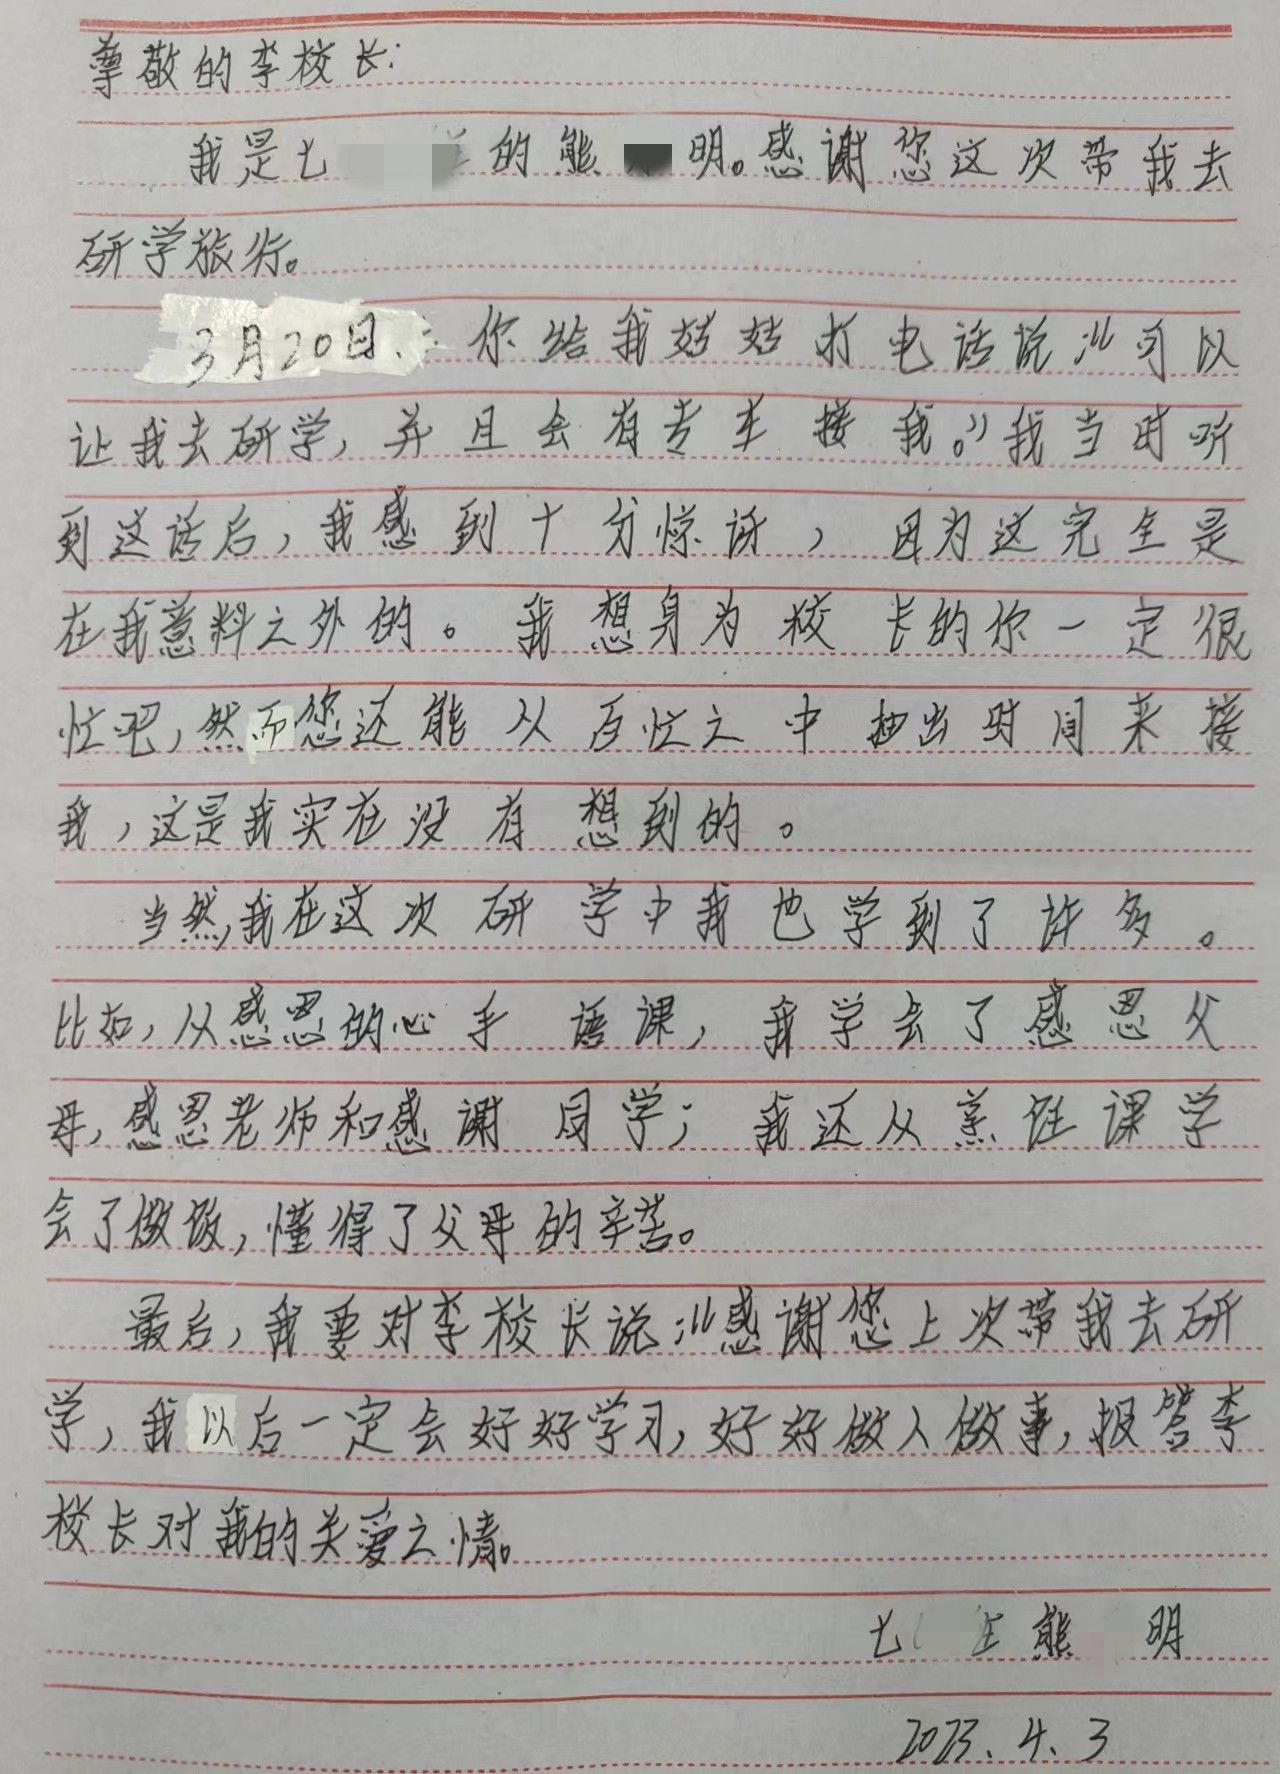 尊敬的李校长:
我是七 的熊 明。感谢您这次带我去
研学旅行。
3月20日、: 你给我姑姑打电话说:“可以
让我去研学,并且会有专车接我。”我当时听
到这话后,我感到十分惊讶,因为这完全是
在我意料之外的。我想身为校长的你一定很
忙吧,然而您还能从百忙之中抽出时间来接
我,这是我实在没有想到的。
当然,我在这次研学中我也学到了许多。
比如,从感恩的心手语课,我学会了感恩父
母,感恩老师和感谢同学;我还从蒸饪课学
会了做饭,懂得了父母的辛苦。
最后,我要对李校长说:“感谢您上次带我去研
学,我以后一定会好好学习,好好做人做事,报答李
校长对我的关爱之情。
七 熊 明
2023.4.3